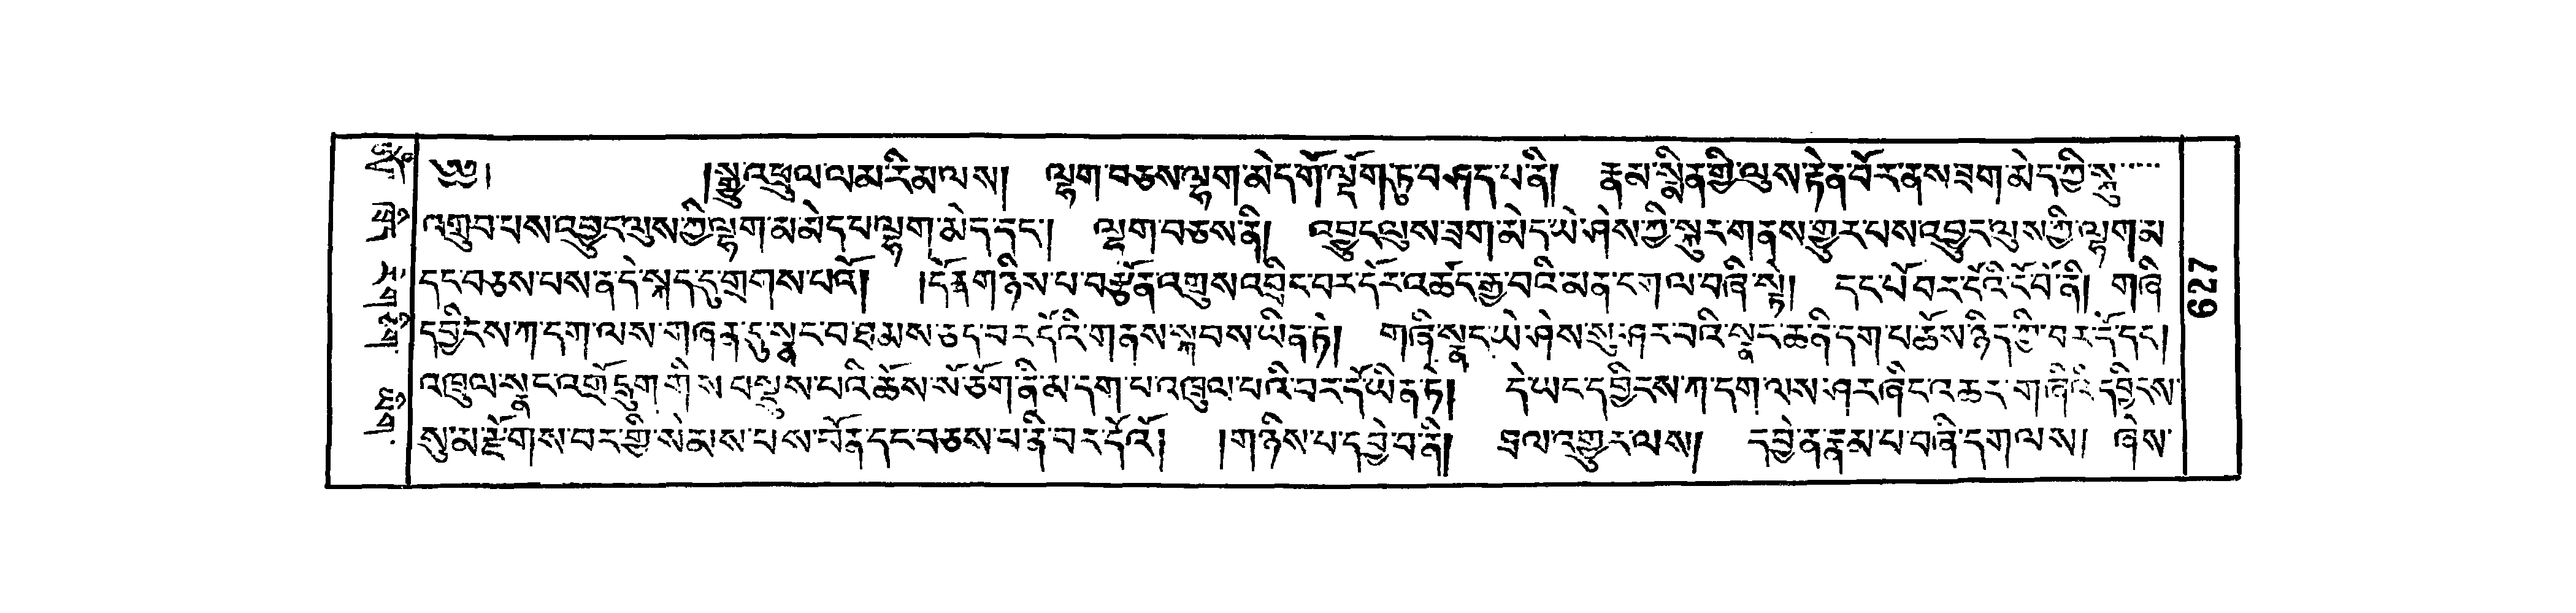 ༄༅། །སྒྱུ་འཕྲུལ་ལམ་རིམ་ལས། ལྷག་བཅས་ལྷག་མེད་གོ་ལྡོག་ཏུ་བཤད་པ་ནི། རྣམ་སྨིན་གྱི་ལུས་རྟེན་བོར་ནས་ཟག་མེད་ཀྱི་སྐུ་
འགྲུབ་པས་འབྱུང་ལུས་ཀྱི་ལྷག་མ་མེད་པ་ལྷག་མེད་དང་། ལྷག་བཅས་ནི། འབྱུང་ལུས་ཟག་མེད་ཡེ་ཤེས་ཀྱི་སྐུར་གནས་གྱུར་པས་འབྱུང་ལུས་ཀྱི་ལྷག་མ་
དང་བཅས་པས་ན་དེ་སྐད་དུ་གྲགས་པའོ། །དོན་གཉིས་པ་བརྩོན་འགྲུས་འབྲིང་བར་དོར་འཚོད་རྒྱ་བའི་མན་ངག་ལ་བཞི་སྟེ། དང་པོ་བར་དོའི་ངོ་བོ་ནི། གཞི་
དབྱིངས་ཀ་དག་ལས་གཞན་དུ་སྣང་བ་ཐམས་ཅད་བར་དོའི་གནས་སྐབས་ཡིན་ཏེ། གཞི་སྣང་ཡེ་ཤེས་སུ་ཤར་བའི་སྣང་ཆ་ནི་དག་པ་ཆོས་ཉིད་ཀྱི་བར་དོ་དང་།
འཁྲུལ་སྣང་འགྲོ་དྲུག་གིས་བསྡུས་པའི་ཆོས་སོ་ཅོག་ནི་མ་དག་པ་འཁྲུལ་པའི་བར་དོ་ཡིན་ཏེ། དེ་ཡང་དབྱིངས་ཀ་དག་ལས་ཤར་ཞིང་འཆར་གཞིའི་དབྱིངས་
སུ་མ་རྫོགས་བར་གྱི་སེམས་པས་བོན་དང་བཅས་པ་ནི་བར་དོའོ། །གཉིས་པ་དབྱེ་བ་ནི། ཐལ་འགྱུར་ལས། དབྱེ་ན་རྣམ་པ་བཞི་དག་ལས། ཞེས་